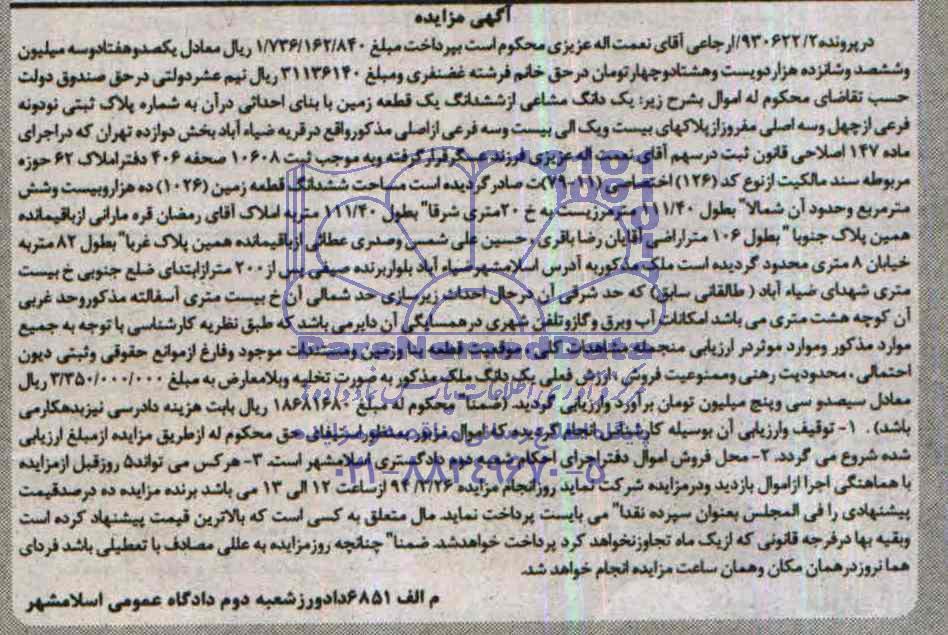 آگهی مزایده
درپرونده ۹۳۰۶۲۲/۲/ارجاعی آقای نعمت اله عزیزی محکوم است بپرداخت مبلغ ۱/۷۳۶/۱۶۲/۸۴۰ ریال معادل یکصدوهفتادوسه میلیون
وششصد وشانزده هزاردویست وهشتادوچهارتومان درحق خانم فرشته غضنفری ومبلغ ۳۱۱۳۶۱۴۰ ریال نیم عشردولتی درحق صندوق دولت
حسب تقاضای محکوم له اموال بشرح زیر: یک دانگ مشاعی ازششدانگ یک قطعه زمین با بنای احداثی درآن به شماره پلاک ثبتی نودونه
فرعی ازچهل وسه اصلی مفروزازپلاکهای بیست ویک الی بیست وسه فرعی ازاصلی مذکورواقع درقریه ضیاء آباد بخش دوازده تهران که دراجرای
ماده ۱۴۷ اصلاحی قانون ثبت درسهم آقای نعمت اله عزیزی فرزند عسگرقرارگرفته وبه موجب ثبت ۱۰۶۰۸ صحفه ۴۰۶ دفتراملاک ۶۲ حوزه
مربوطه سند مالکیت ازنوع کد (۱۲۶) اختصاصی (۱۱-۷۹)ت صادرگردیده است مساحت ششدانگ قطعه زمین (۱۰۲۶) ده هزاروبیست وشش
مترمربع وحدود آن شمالا" بطول ۱۱۱/۴۰ مترمرزیست به خ ۲۰متری شرقا" بطول ۱۱۱/۴۰ متربه املاک آقای رمضان قره مارانی ازباقیمانده
همین پلاک جنوبا " بطول ۱۰۶ متراراضی آقایان رضا باقری ، حسین علی شمس وصدری عطائی ازباقیمانده همین پلاک غربا" بطول ۸۲ متربه
خیابان ۸ متری محدود گردیده است ملک مذکوربه آدرس اسلامشهرضیاء آباد بلواربرنده صیفی پس از۲۰۰ مترازابتدای ضلع جنوبی خ بیست
متری شهدای ضیاء آباد ( طالقانی سابق) که حد شرقی آن درحال احداث زیرسازی حد شمالی آن خ بیست متری آسفالته مذکوروحد غربی
آن کوچه هشت متری می باشد امکانات آب وبرق وگازوتلفن شهری درهمسایگی آن دایرمی باشد که طبق نظریه کارشناسی با توجه به جمیع
موارد مذکور وموارد موثردر ارزیابی منجمله مشاهدات کلی ، موقعیت قطعه بنا وزمین ومستحدثات موجود وفارغ ازموانع حقوقی وثبتی دیون
احتمالی ، محدودیت رهنی وممنوعیت فروش ، ارزش فعلی یک دانگ ملک مذکور به صورت تخلیه وبلامعارض به مبلغ ۳/۳۵۰/۰۰۰/۰۰۰ ریال
معادل سیصدو سی وپنج میلیون تومان برآورد وارزیابی گردید. (ضمنا" محکوم له مبلغ ۱۸۶۸۱۶۸۰ ریال بابت هزینه دادرسی نیزبدهکارمی
باشد) . ۱- توقیف وارزیابی آن بوسیله کارشناس انجام گردیده که اموال مزبور بمنظور استیفای حق محکوم له ازطریق مزایده ازمبلغ ارزیابی
شده شروع می گردد. ۲- محل فروش اموال دفتراجرای احکام شعبه دوم دادگستری اسلامشهر است. ۳- هرکس می تواند۵ روزقبل ازمزایده
با هماهنگی اجرا ازاموال بازدید ودرمزایده شرکت نماید روزانجام مزایده ۹۴/۲/۲۶ ازساعت ۱۲ الی ۱۳ می باشد برنده مزایده ده درصدقیمت
پیشنهادی را فی المجلس بعنوان سپرده نقدا" می بایست پرداخت نماید. مال متعلق به کسی است که بالاترین قیمت پیشنهاد کرده است
وبقیه بها درفرجه قانونی که ازیک ماه تجاوزنخواهد کرد پرداخت خواهدشد. ضمنا" چنانچه روزمزایده به عللی مصادف با تعطیلی باشد فردای
هما نروزدرهمان مکان وهمان ساعت مزایده انجام خواهد شد.
م الف ۶۸۵۱ دادورز شعبه دوم دادگاه عمومی اسلامشهر
ParsNamadData
۰۲۱-۸۸۳۴۹۶۷۰-۵